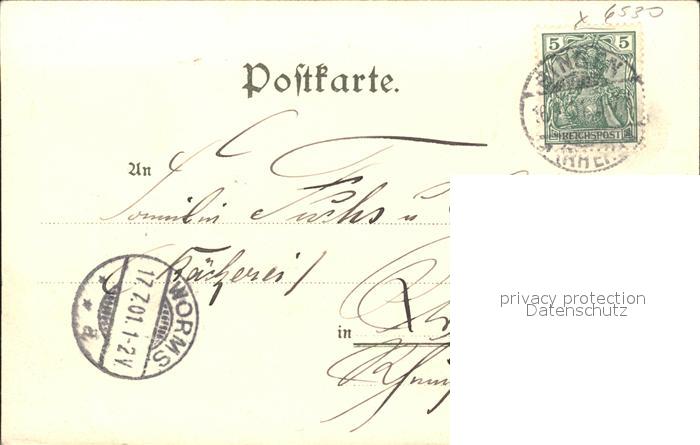 x 6530
5 5
BINGEN
REICHSPOST
(RHEIN)
Postkarte.
An
Familie Fuchs u
(Bäckerei)
WORMS
17.7.01.1-2V.
in
privacy protection
Datenschutz